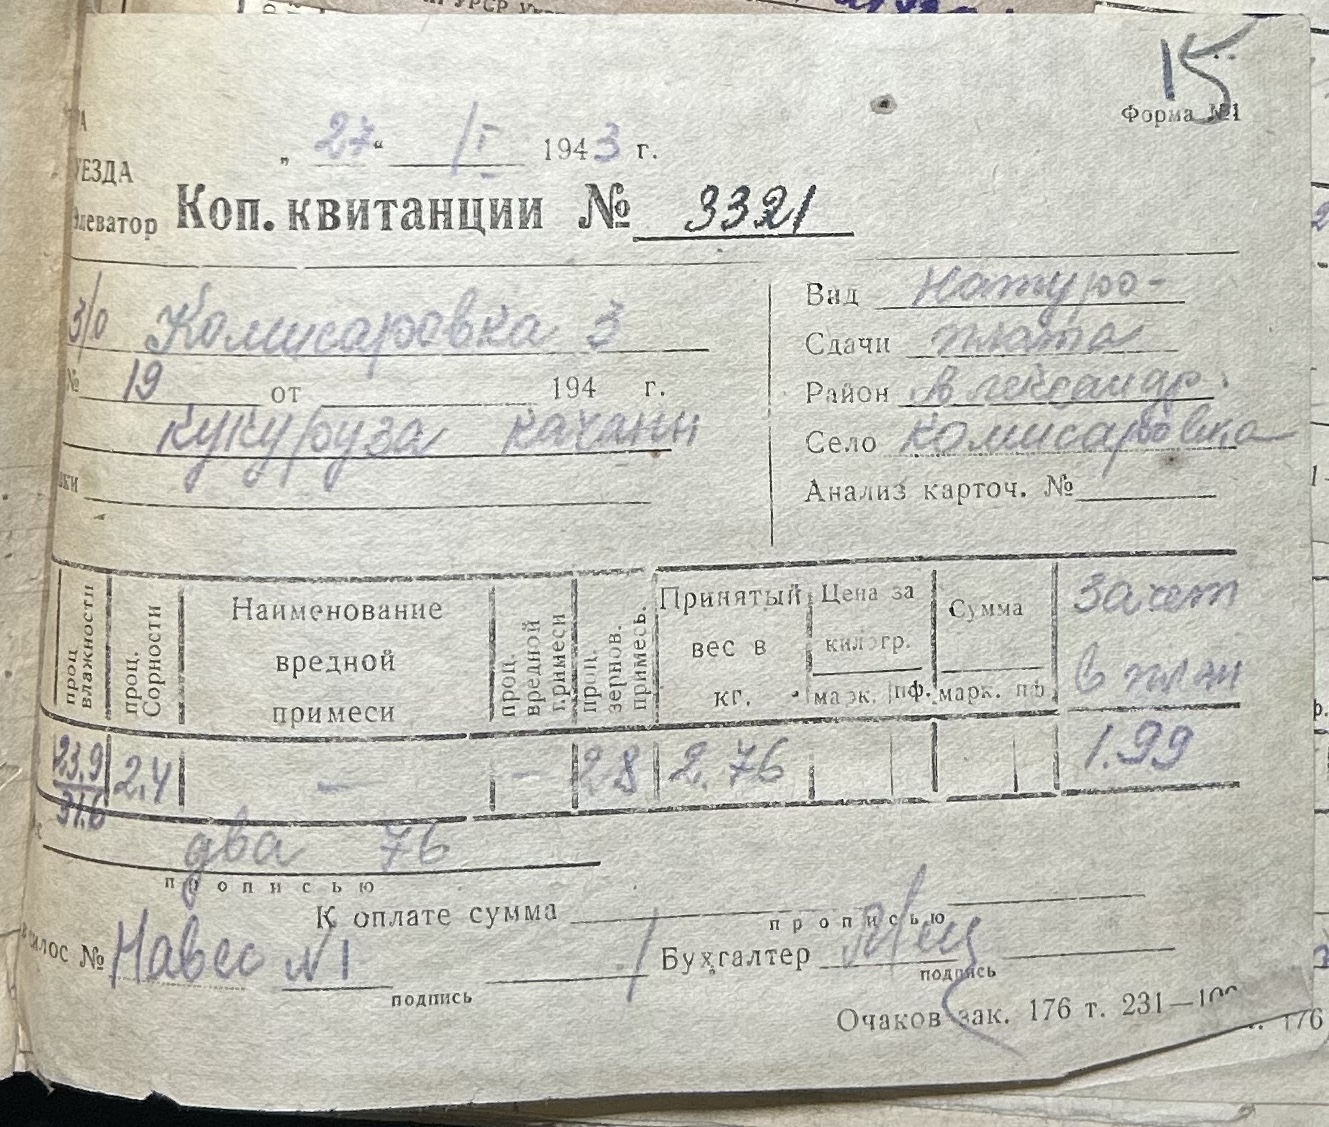 15
Форма №1
„ 27 “ /I 1943 г.
УЕЗДА
Элеватор Коп. квитанции № 3321
З/о Комисаровка 3
№ 19 от 194 г.
кукуруза качани
Вид Натуро-
Сдачи плата
Район Александр.
Село Комисаровка
Анализ карточ. №
проц влажности
проц. Сорности
Наименование вредной примеси
проц. вредной примеси
проц. зернов. примесь.
Принятый вес в кг.
Цена за килогр.
марк. пф.
Сумма
марк. пф.
зачет в план
23.9 2.4 — — 28 2.76 1.99
31.6
два 76
прописью
К оплате сумма
прописью
силос № Навес №1
подпись
Бухгалтер
подпись
Очаков зак. 176 т. 231—